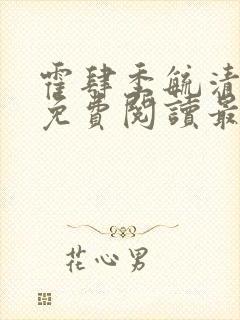 霍肆季毓清
免費閱讀最
花心男